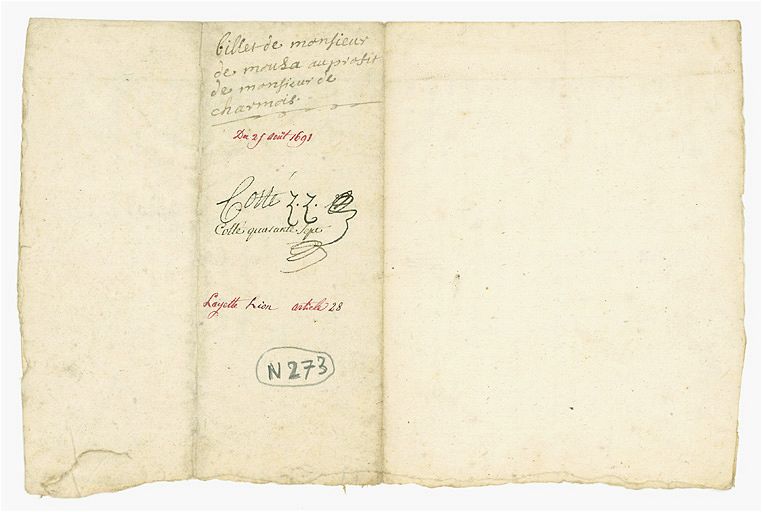 billet de monsieur
de mouza au profit
de monsieur de
charmois.
Du 25 Août 1691
Cotté Z.Z.
Cotté quarante Sept
Layette article 28
N 273